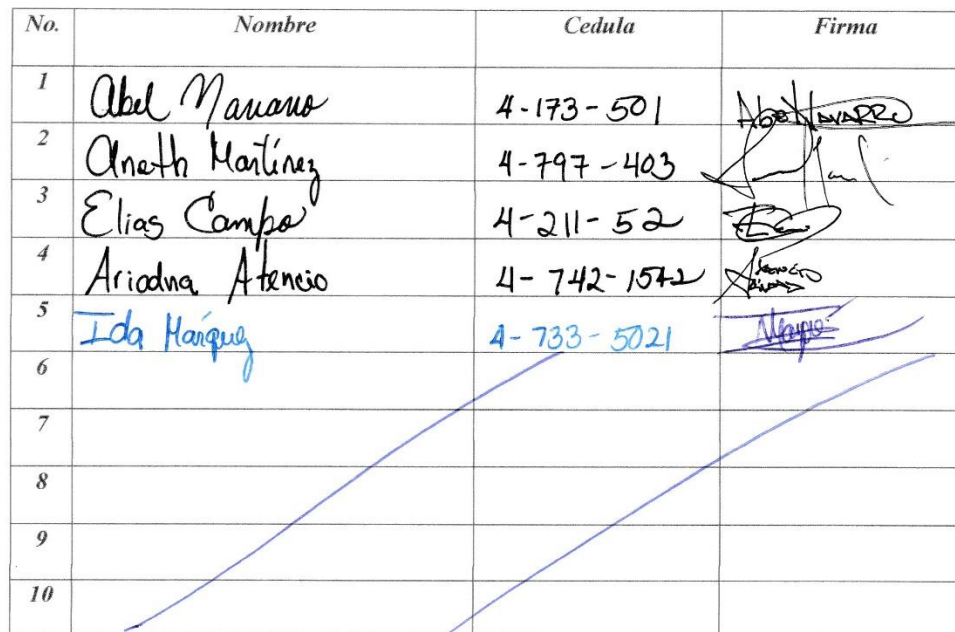 No. Nombre Cedula Firma
1 Abel Navarro 4-173-501 Abel NAVARRO
2 Aneth Martínez 4-797-403
3 Elias Campo 4-211-52
4 Ariadna Atencio 4-742-1542
5 Ida Márquez 4-733-5021
6
7
8
9
10